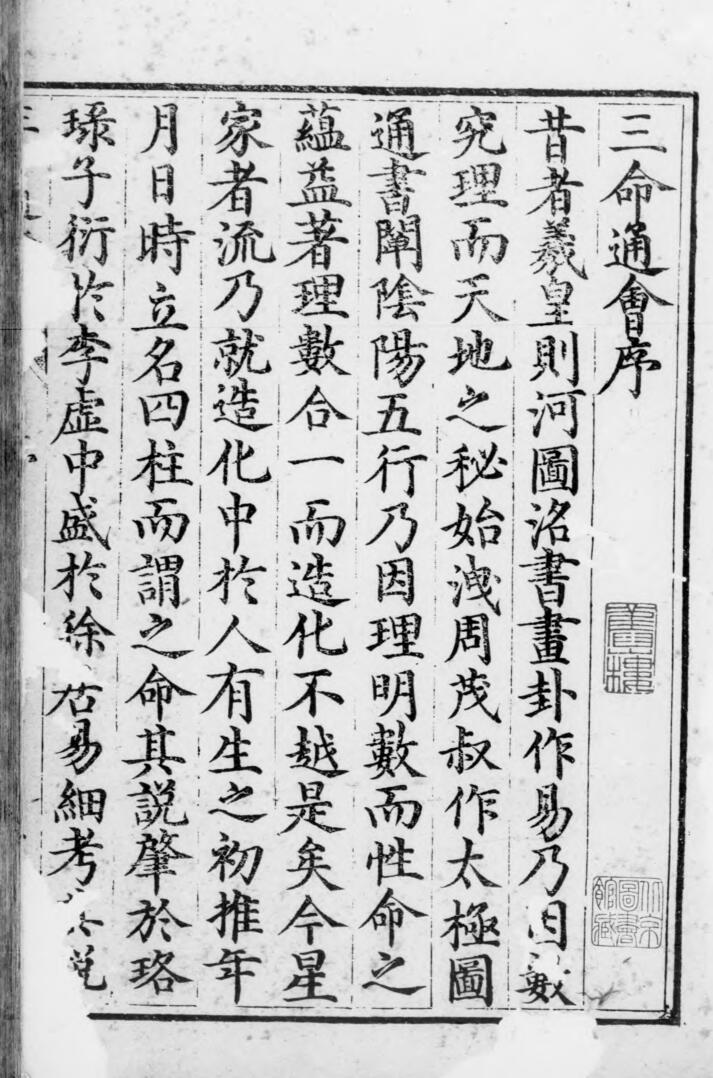 三命通會序
昔者羲皇則河圖洛書畫卦作易乃因數
究理而天地之秘始洩周茂叔作太極圖
通書闡陰陽五行乃因理明數而性命之
蘊益著理數合一而造化不越是矣今星
家者流乃就造化中於人有生之初推年
月日時立名四柱而謂之命其說肇於珞
琭子衍於李虛中盛於徐居易細考其說
三
書樓
北京圖書館藏